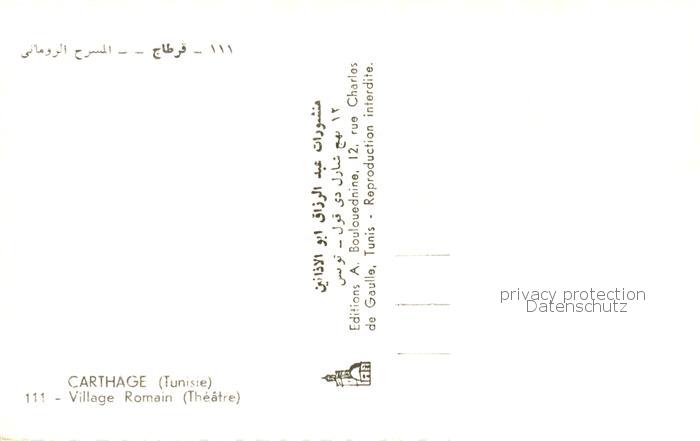 ١١١ - قرطاج - - المسرح الروماني
منشورات عبد الرزاق ابو الاذانين
١٢ نهج شارل دي قول - تونس
Editions A. Boulouednine, 12, rue Charles
de Gaulle, Tunis - Reproduction interdite.
privacy protection
Datenschutz
CARTHAGE (Tunisie)
111 - Village Romain (Théâtre)